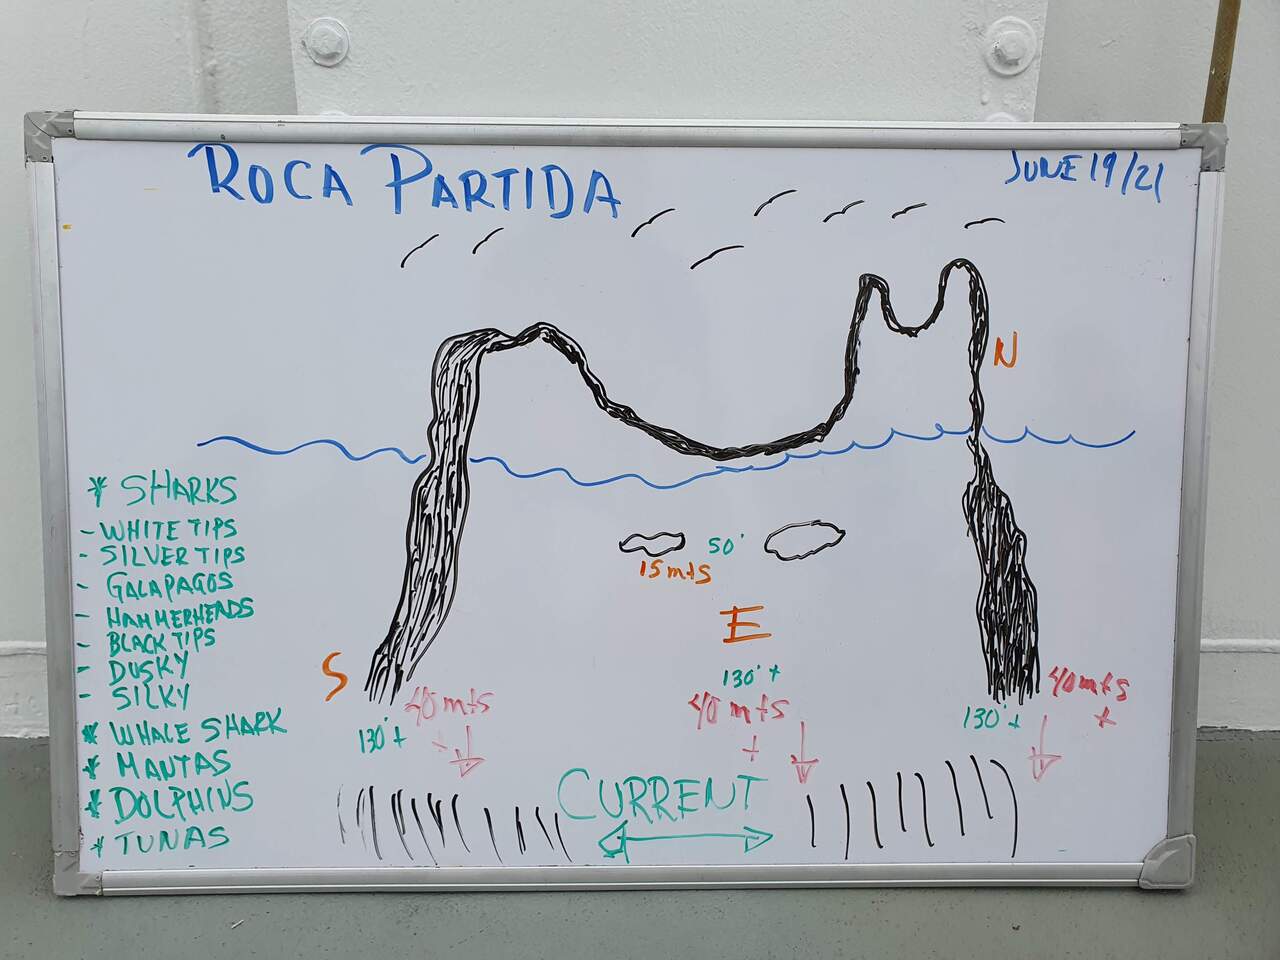 ROCA PARTIDA
JUNE 19/21
N
* SHARKS
- WHITE TIPS
- SILVER TIPS
- GALAPAGOS
- HAMMERHEADS
- BLACK TIPS
- DUSKY
- SILKY
* WHALE SHARK
* MANTAS
* DOLPHINS
* TUNAS
50'
15 mts
E
S
130' +
40 mts
+
130' +
40 mts
+
130' +
40 mts
+
CURRENT